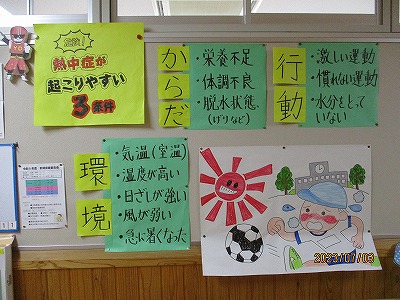 危険!
熱中症が
起こりやすい
3条件
からだ
・栄養不足
・体調不良
・脱水状態
(げりなど)
行動
・激しい運動
・慣れない運動
・水分をとって
いない
環境
・気温(室温)
・湿度が高い
・日ざしが強い
・風が弱い
・急に暑くなった
2023/07/03